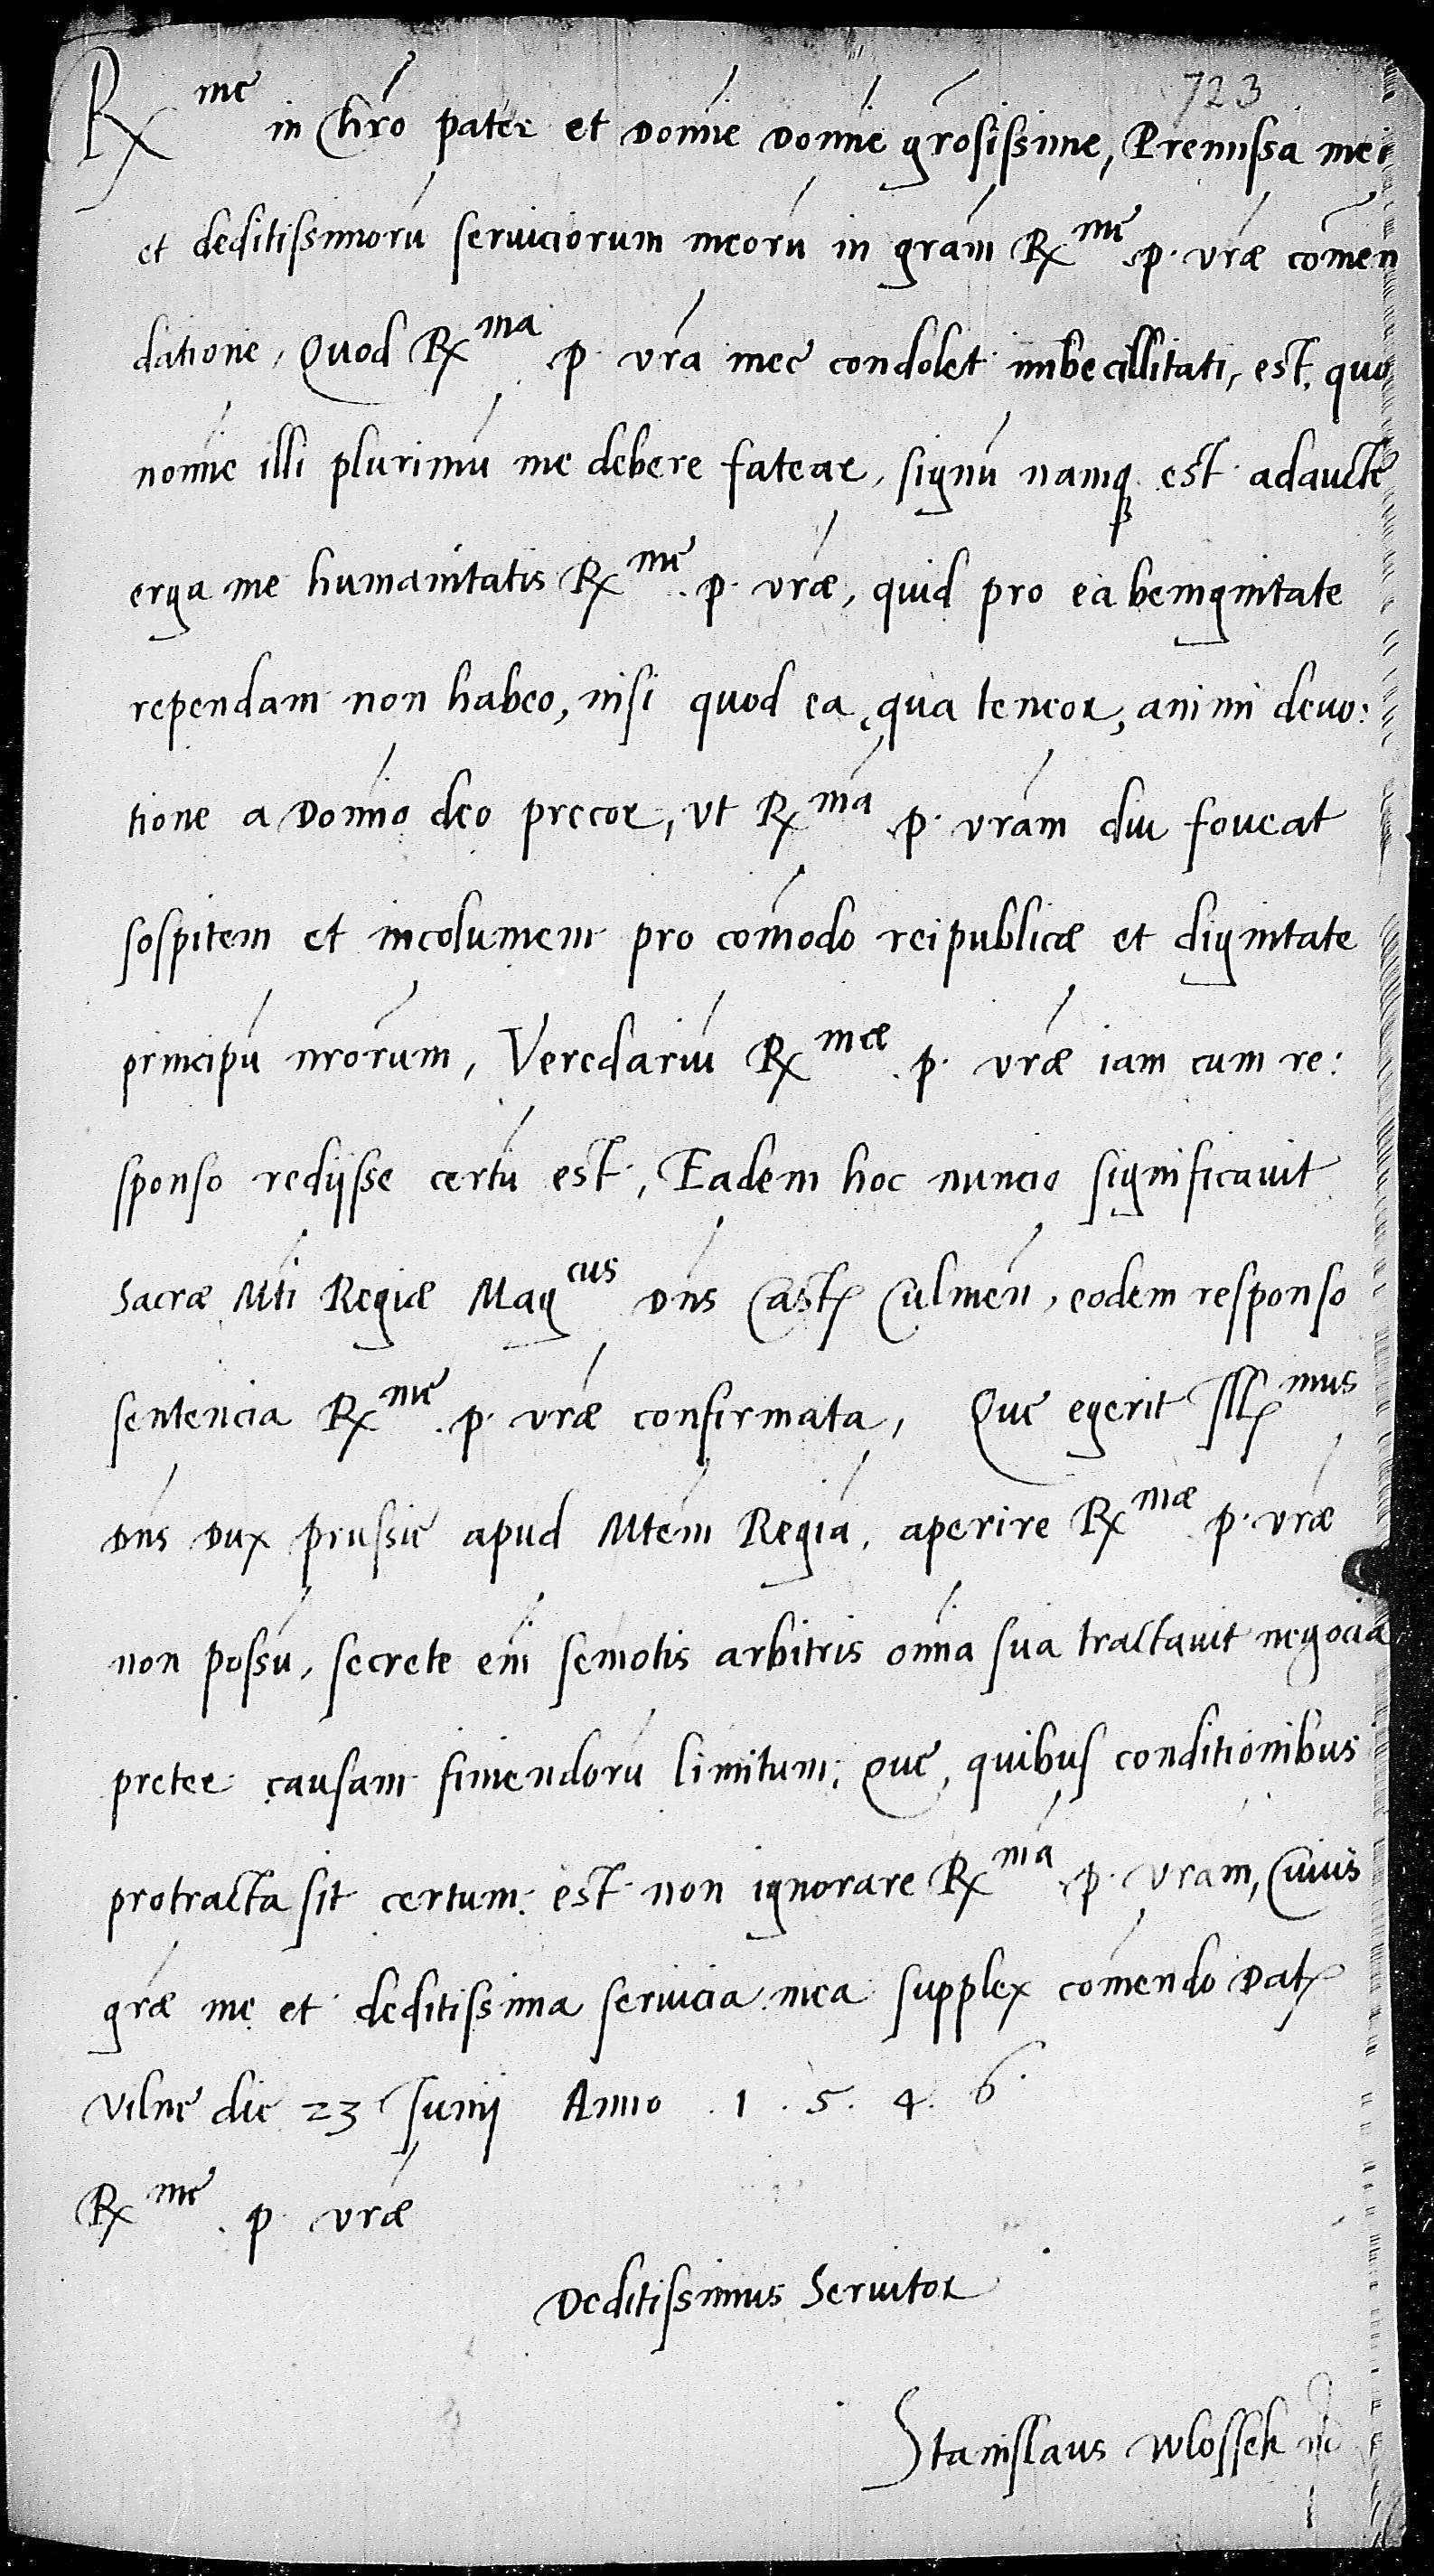 723
Rx me in Chro pater et Domie Domie grosissime, Premissa mei
et deditissimoru seruiciorum meoru in gram Rx me p. vrae comen
datione, Quod Rx ma p. vra meę condolet imbecillitati, est, quo
nomie illi plurimu me debere fatear, signu namq est adauctę
erga me humanitatis Rx mę p. vrae, quid pro ea benignitate
rependam non habeo, nisi quod ea, qua teneor, animi deuo:
tione a Domio deo precor, vt Rx ma p. vram diu foueat
sospitem et incolumem pro comodo reipublicæ et dignitate
principu nrorum, Veredariu Rx mæ p. vræ iam cum re:
sponso redijsse certu est, Eadem hoc nuncio significauit
Sacræ Mti Regiæ Mag cus Dns Cast Culmen, eodem responso
sentencia Rx mę p. vræ confirmata, Quę egerit Ill mus
Dns Dux prussię apud Mtem Regia, aperire Rx mæ p. vræ
non possu, secrete em semotis arbitris omia sua tractauit negocia
preter causam finiendoru limitum, Quę, quibus conditionibus
protracta sit certum est non ignorare Rx ma p. vram, Cuius
græ me et deditissima seruicia mea supplex comendo Dat
Vilnę die 23 Junij Anno .1.5.4.6.
Rx mę p. vræ
Deditissimus Seruitor
Stanislaus Wlossek